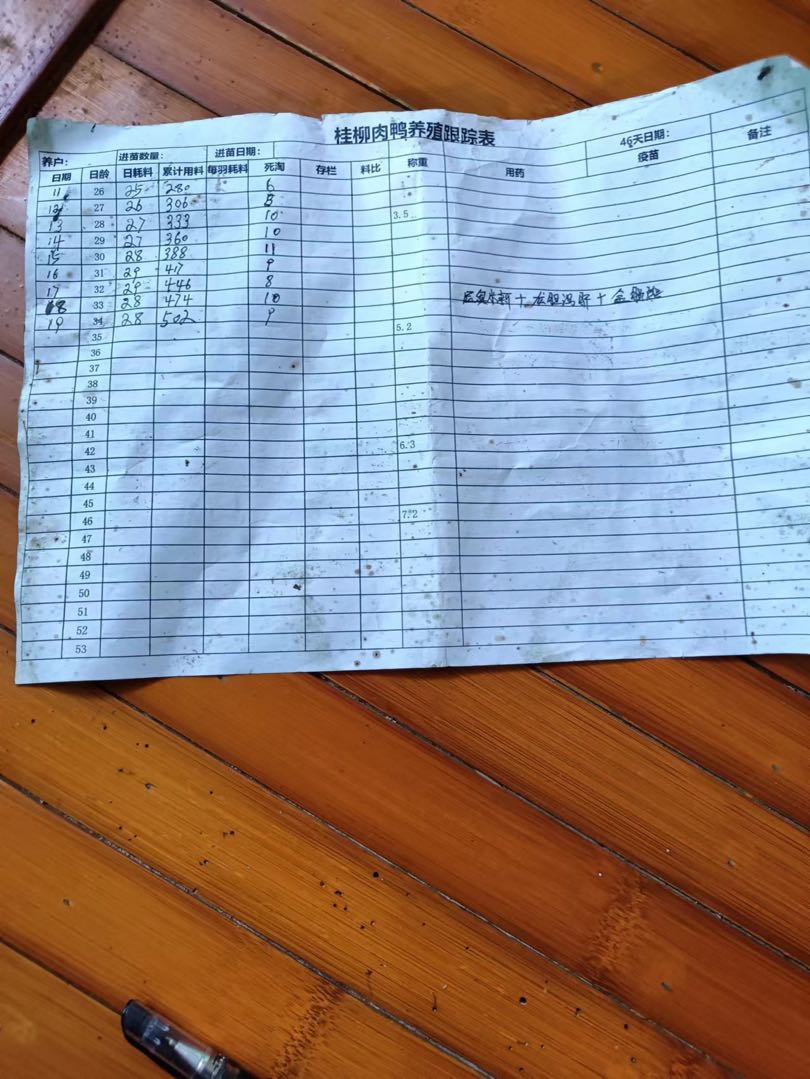 桂柳肉鸭养殖跟踪表
养户： 进苗数量： 进苗日期： 46天日期： 备注
日期 日龄 日耗料 累计用料 每羽耗料 死淘 存栏 料比 称重 用药 疫苗
11 26 25 280 6
12 27 26 306 8
13 28 27 333 10 3.5
14 29 27 360 10
15 30 28 388 11
16 31 29 417 9
17 32 29 446 8
18 33 28 474 10 + 龙胆泻肝 +
19 34 28 502 9
35 5.2
36
37
38
39
40
41
42 6.3
43
44
45
46 7.2
47
48
49
50
51
52
53